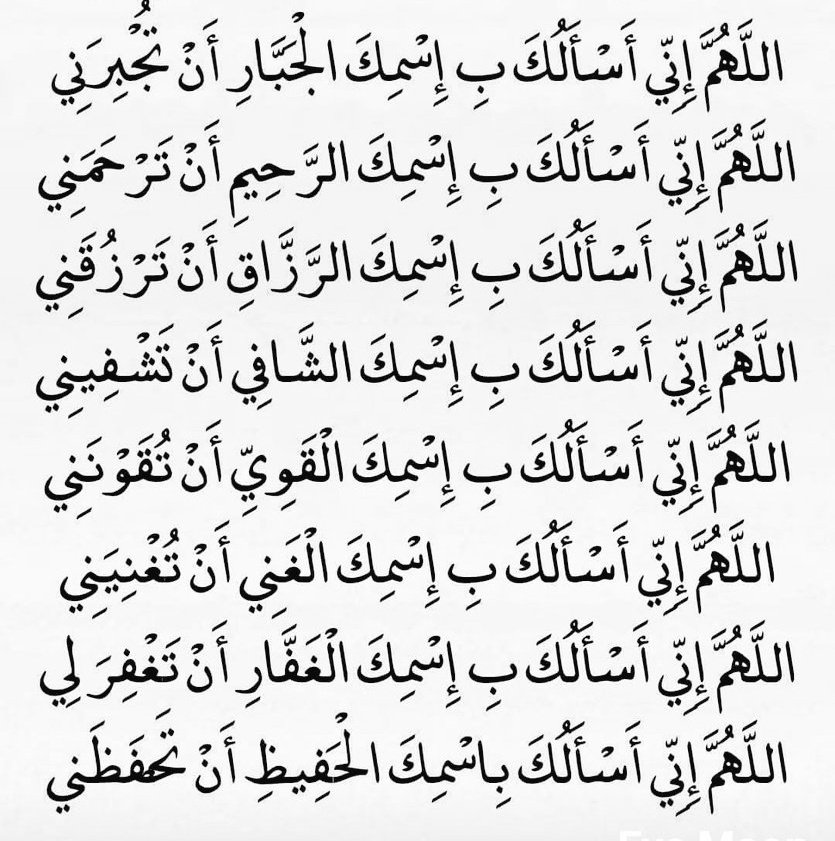 اللَّهُمَّ إِنِّي أَسْأَلُكَ بِ إِسْمِكَ الْجَبَّارِ أَنْ تُجْبِرَنِي
اللَّهُمَّ إِنِّي أَسْأَلُكَ بِ إِسْمِكَ الرَّحِيمِ أَنْ تَرْحَمَنِي
اللَّهُمَّ إِنِّي أَسْأَلُكَ بِ إِسْمِكَ الرَّزَّاقِ أَنْ تَرْزُقَنِي
اللَّهُمَّ إِنِّي أَسْأَلُكَ بِ إِسْمِكَ الشَّافِي أَنْ تَشْفِينِي
اللَّهُمَّ إِنِّي أَسْأَلُكَ بِ إِسْمِكَ الْقَوِيِّ أَنْ تُقَوْنَنِي
اللَّهُمَّ إِنِّي أَسْأَلُكَ بِ إِسْمِكَ الْغَنِي أَنْ تُغْنِيَنِي
اللَّهُمَّ إِنِّي أَسْأَلُكَ بِ إِسْمِكَ الْغَفَّارِ أَنْ تَغْفِرَ لِي
اللَّهُمَّ إِنِّي أَسْأَلُكَ بِاسْمِكَ الْحَفِيظِ أَنْ تَحْفَظَنِي